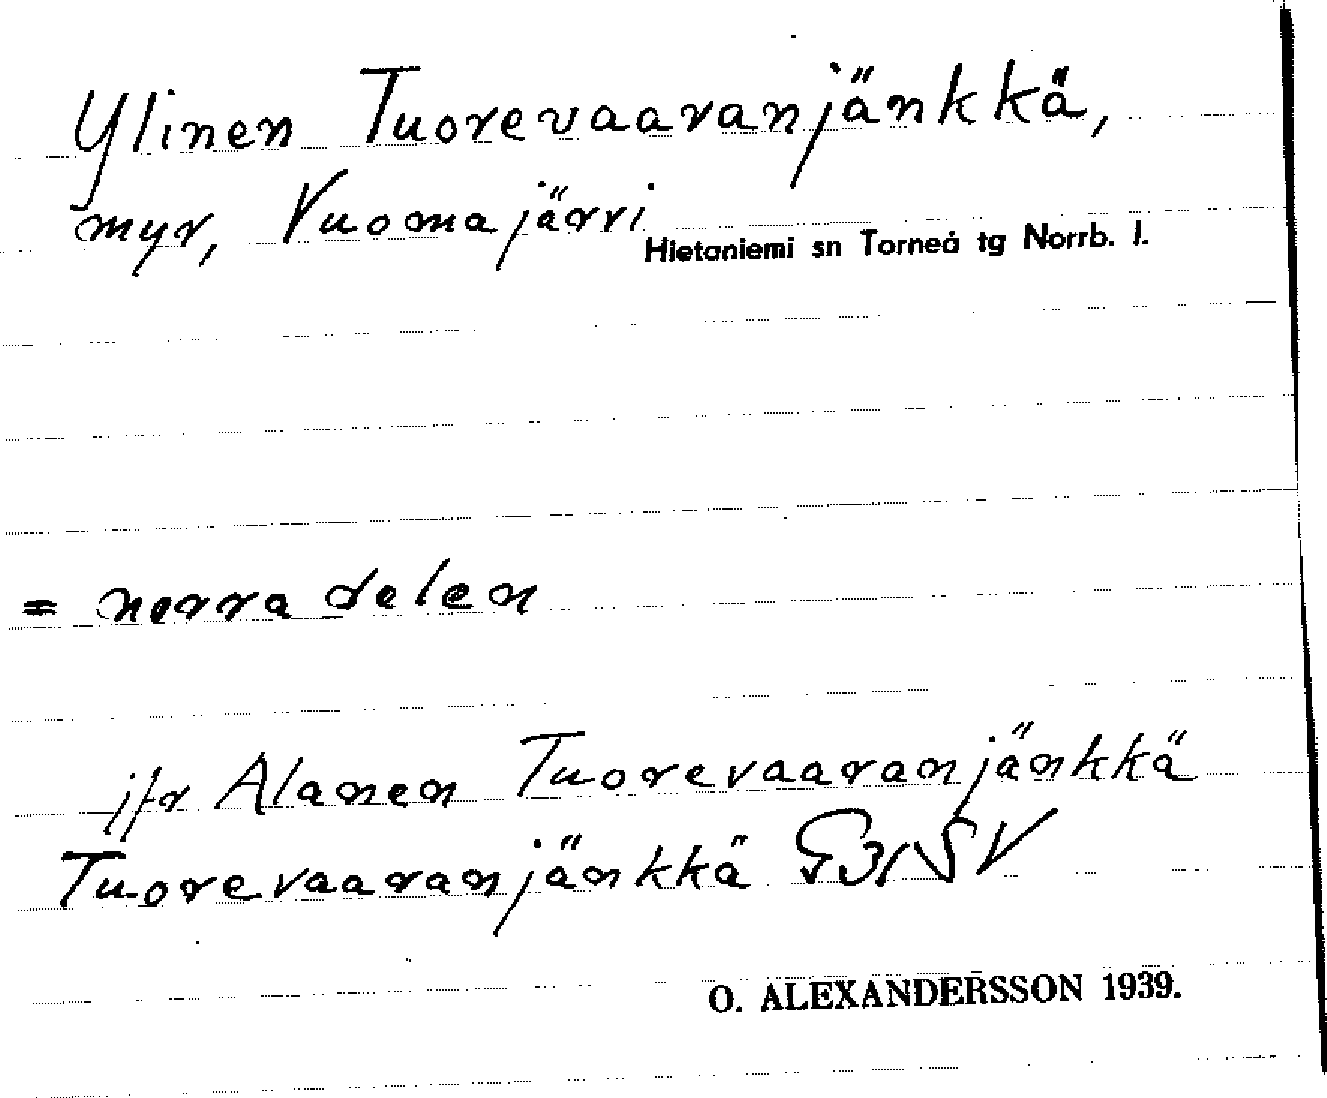 Ylinen Tuorevaaranjänkkä,
myr, Vuomajärvi
Hietaniemi sn Torneå tg Norrb. l.
= norra delen
jfr Alanen Tuorevaaranjänkkä
Tuorevaaranjänkkä
O. ALEXANDERSSON 1939.